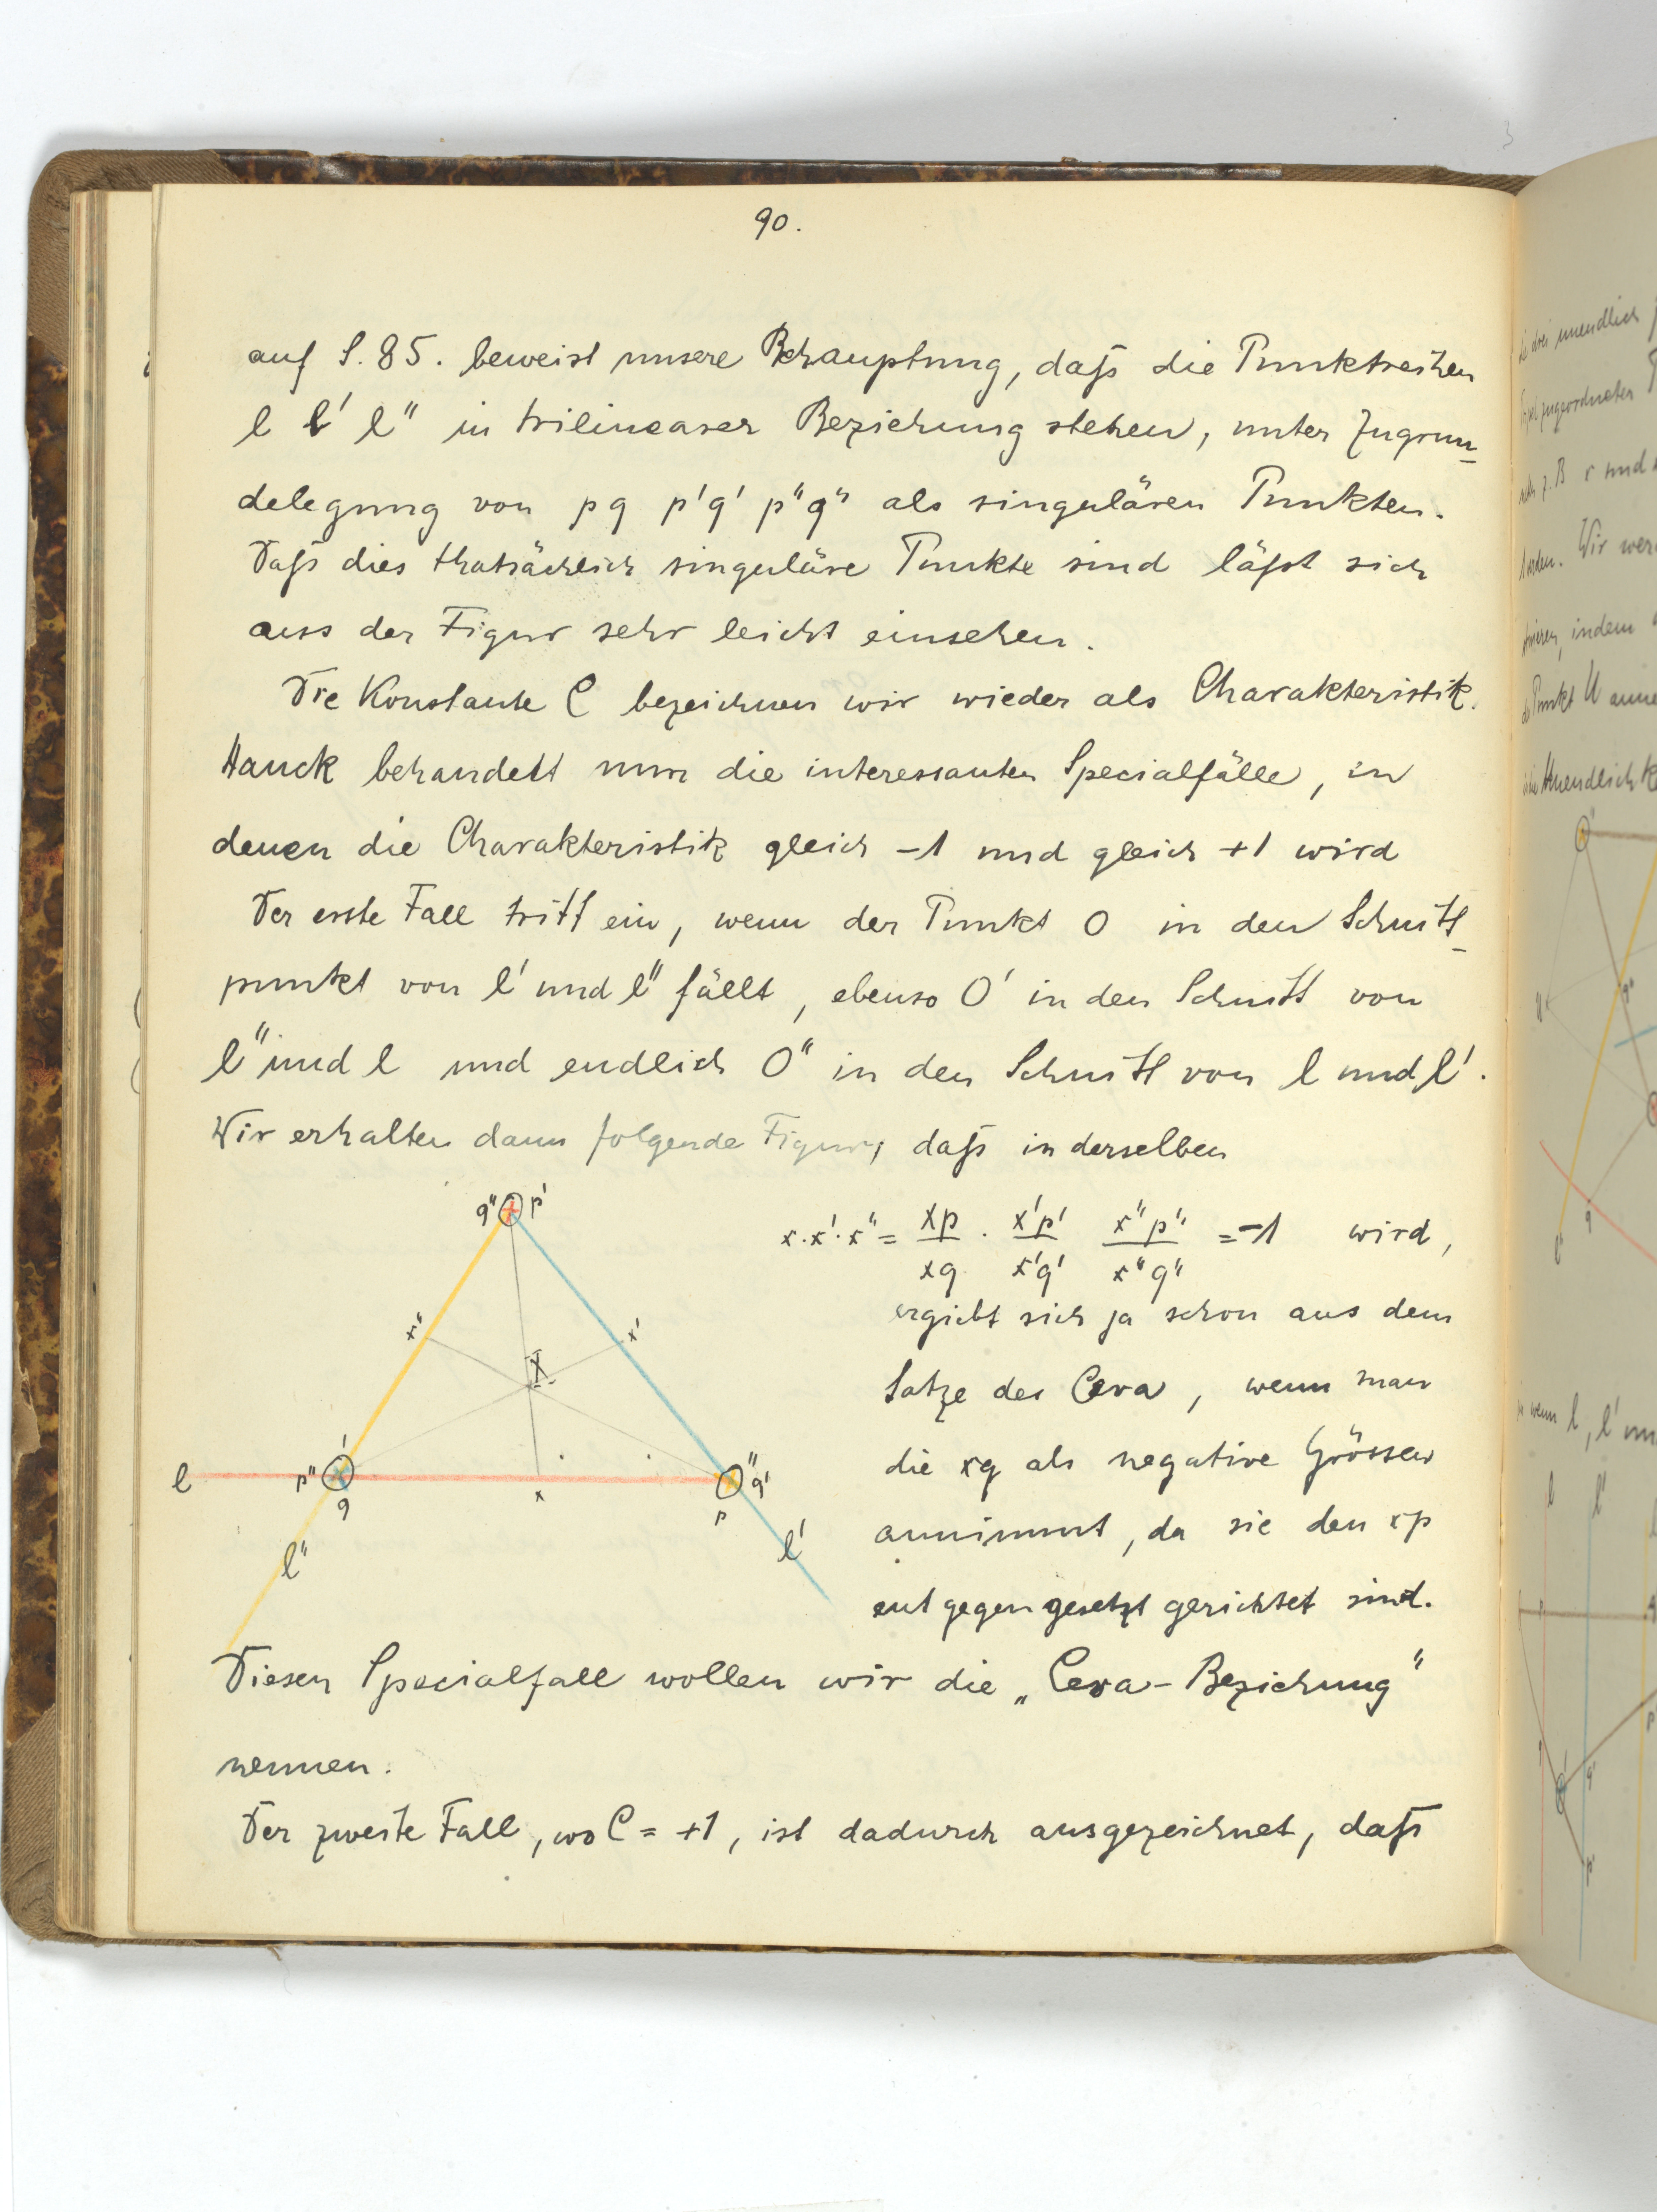 90.
auf S. 85. beweist unsere Behauptung, daß die Punktreihen
l l' l" in trilinearer Beziehung stehen, unter Zugrun-
delegung von p q p'q' p"q" als singulären Punkten.
Daß dies thatsächlich singuläre Punkte sind läßt sich
aus der Figur sehr leicht einsehen.
Die Konstante C bezeichnen wir wieder als Charakteristik.
Hauck behandelt nun die interessanten Specialfälle, in
denen die Charakteristik gleich -1 und gleich +1 wird
Der erste Fall tritt ein, wenn der Punkt O in den Schnitt-
punkt von l' und l" fällt, ebenso O' in den Schnitt von
l" und l und endlich O" in den Schnitt von l und l'.
Wir erhalten dann folgende Figur, daß in derselben
q" p'
x·x'·x" = xp/xq · x'p'/x'q' x"p"/x"q" = -1 wird,
ergiebt sich ja schon aus dem
x" x'
X
Satze des Ceva, wenn man
die xq als negative Grössen
l p" ' q x " q' p
annimmt, da sie den xp
l" l'
entgegengesetzt gerichtet sind.
Diesen Specialfall wollen wir die „Ceva-Beziehung"
nennen.
Der zweite Fall, wo C = +1, ist dadurch ausgezeichnet, daß
die drei unendlich
zugeordneten
z.B r und
Wir wer
indem
Punkt U anne
Unendlich
q"
U
q
wenn l, l' un
l l'
q'
p'